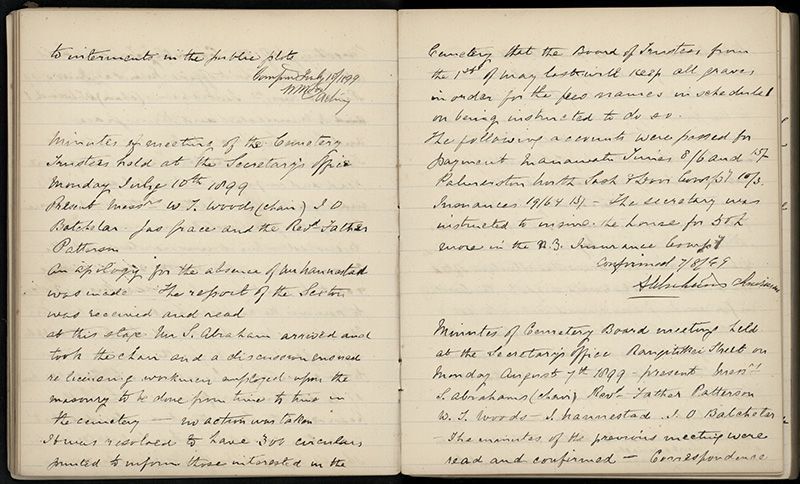 to interments in the public plots
Confirmed July 10/1899
Acting
Minutes of meeting of the Cemetery
Trustees held at the Secretary's Office
Monday July 10th 1899
Present Messrs W. T. Woods (chair) J O
Batchelar Jas grace and the Revd Father
Patterson
An apology for the absence of Mr hannestad
was made The report of the Sexton
was received and read
at this stage Mr S. Abraham arrived and
took the chair and a discussion ensued
re licensing workmen employed upon the
masonry to be done from time to time in
the cemetery — no action was taken
It was resolved to have 300 circulars
printed to inform those interested in the
Cemetery that the Board of Trustees from
the 1st of may last will keep all graves
in order for the fees names in schedule
on being instructed to do so.
The following accounts were passed for
payment Manawatu Times 8/6 and 15/-
Palmerston North Sash & Door Compy 10/3.
Insurances 15/- The Secretary was
instructed to insure the house for
more in the N.Z. Insurance Compy
Confirmed 7/8/99
Chairman
Minutes of Cemetery Board meeting held
at the Secretary's office Rangitikei Street on
Monday August 7th 1899 – present Messrs
S. abrahams (chair) Revd Father Patterson
W. T. Woods – J. hannestad J. O Batchelar
– The minutes of the previous meeting were
read and confirmed — Correspondence